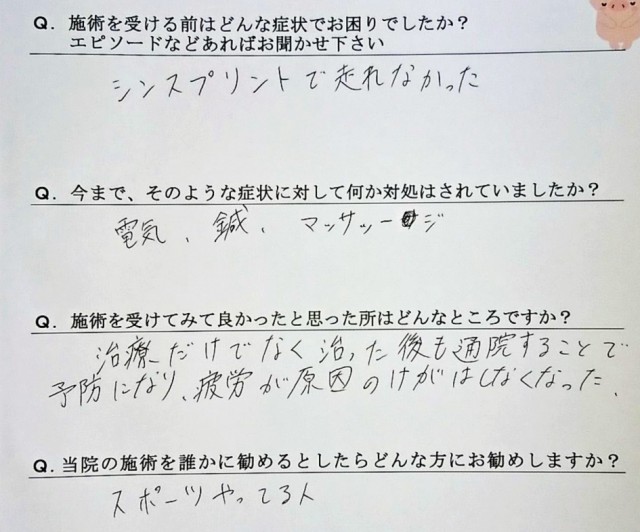 Q．施術を受ける前はどんな症状でお困りでしたか？
エピソードなどあればお聞かせ下さい
シンスプリントで走れなかった
Q．今まで、そのような症状に対して何か対処はされていましたか？
電気、鍼、マッサッージ
Q．施術を受けてみて良かったと思った所はどんなところですか？
治療だけでなく治った後も通院することで
予防になり、疲労が原因のけがはしなくなった、
Q．当院の施術を誰かに勧めるとしたらどんな方にお勧めしますか？
スポーツやってる人